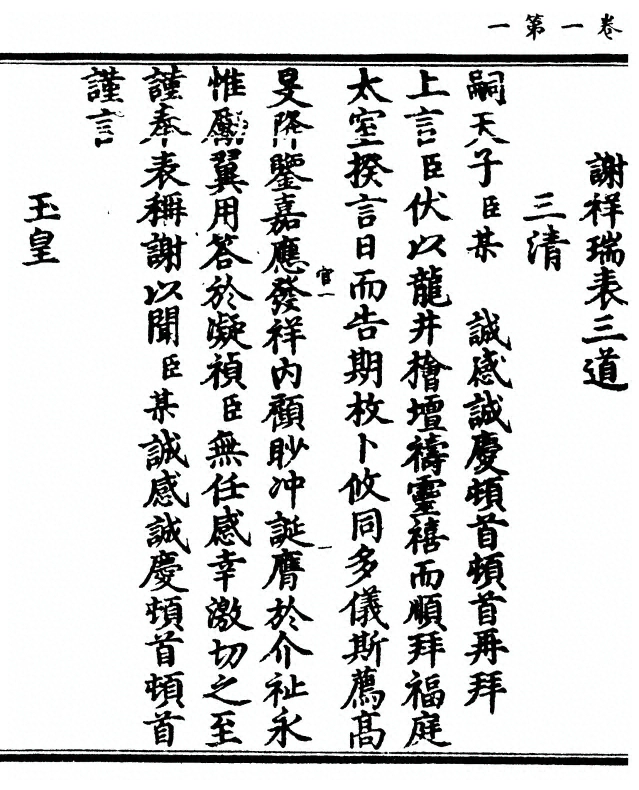 卷一第一
謝祥瑞表三道
三清
嗣天子臣某　誠感誠慶頓首頓首再拜
上言臣伏以龍井檜壇禱靈禧而順拜福庭
太室揆言日而告期枚卜攸同多儀斯薦高
旻降鑒嘉應發祥內顧眇冲誕膺於介祉永
惟翼用答於凝禎臣無任感幸激切之至
謹奉表稱謝以聞臣某誠感誠慶頓首頓首
謹言
玉皇
官一